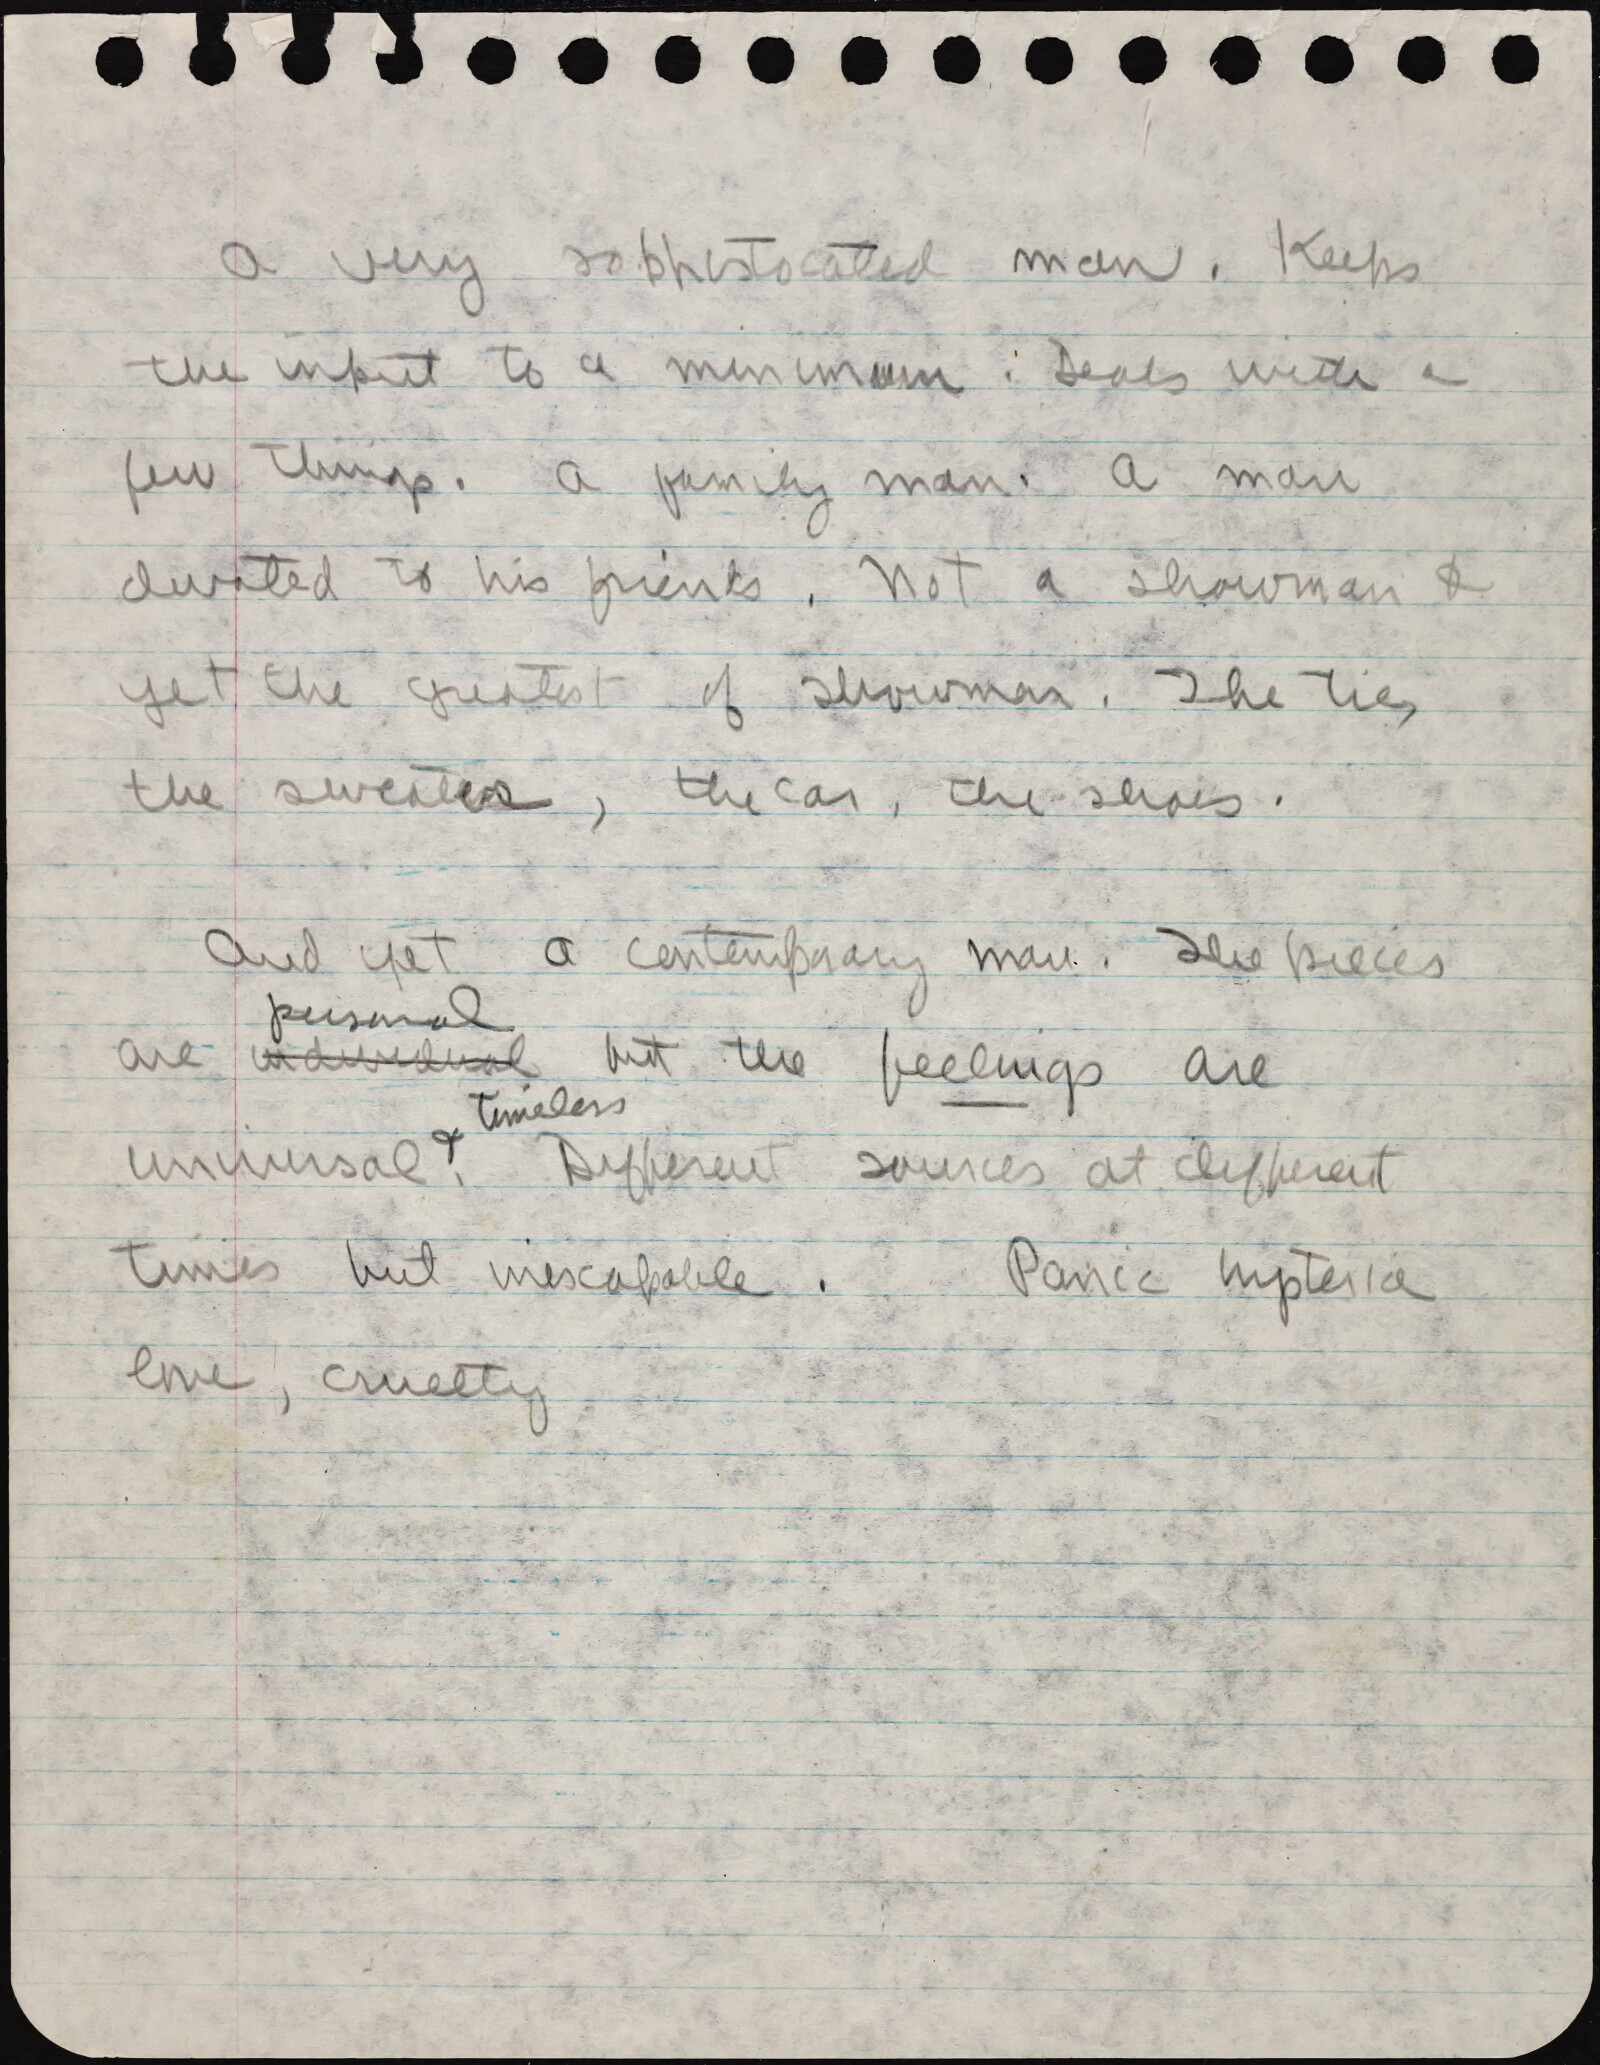 a very sophistocated man. Keeps
the input to a minimum. Deals with a
few things. a family man. a man
devoted to his friends. Not a showman &
yet the greatest of showman. The tie,
the sweater, the car, the shoes.
And yet a contemporary man. The pieces
personal
are individual but the feelings are
& timeless
universal. Different sources at different
times but inescapable. Panic hysteria
love, cruelty